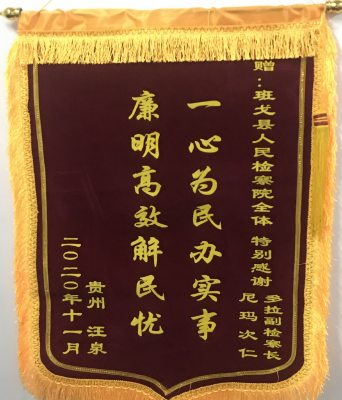 赠：班戈县人民检察院全体 特别感谢
多拉副检察长
尼玛次仁
一心为民办实事
廉明高效解民忧
贵州 汪泉
二〇二〇年十一月